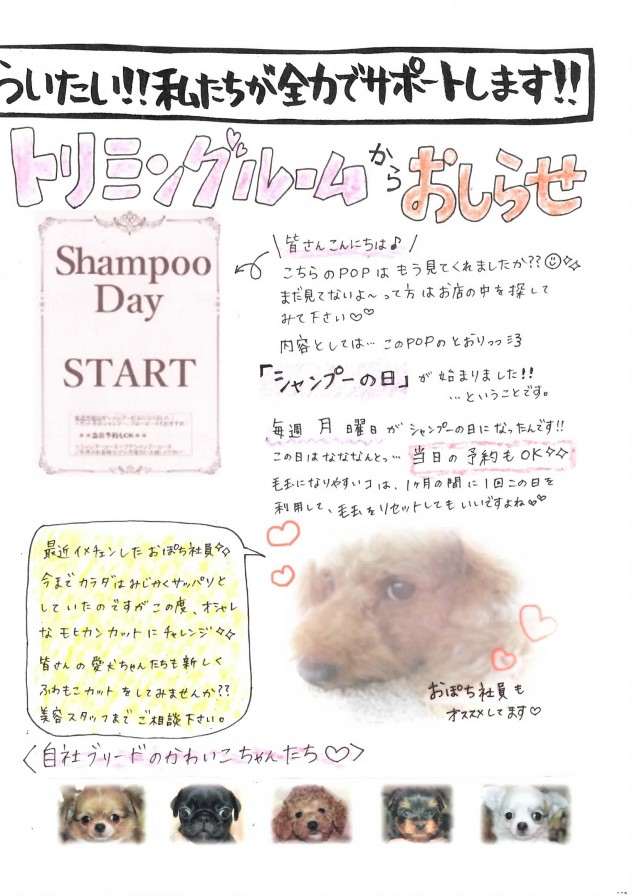 ういたい!!私たちが全力でサポートします!!
トリミングルームからおしらせ
Shampoo
Day
START
皆さんこんにちは♪
こちらのPOPはもう見てくれましたか??
まだ見てないよ～って方はお店の中を探して
みて下さい♡♡
内容としては…このPOPのとおりっっ
「シャンプーの日」が始まりました!!
…ということです。
毎週月曜日がシャンプーの日になったんです!!
この日はなななんとっ…当日の予約もOK
毛玉になりやすいコは、1ヶ月の間に1回この日を
利用して、毛玉をリセットしてもいいですよね♡♡
最近イメチェンしたおぽち社員
今までカラダはみじかくサッパリと
していたのですがこの度、オシャレ
なモヒカンカットにチャレンジ
皆さんの愛犬ちゃんたちも新しく
ふわもこカットをしてみませんか??
美容スタッフまでご相談下さい。
おぽち社員も
オススメしてます♡
〈自社ブリードのかわいこちゃんたち♡〉